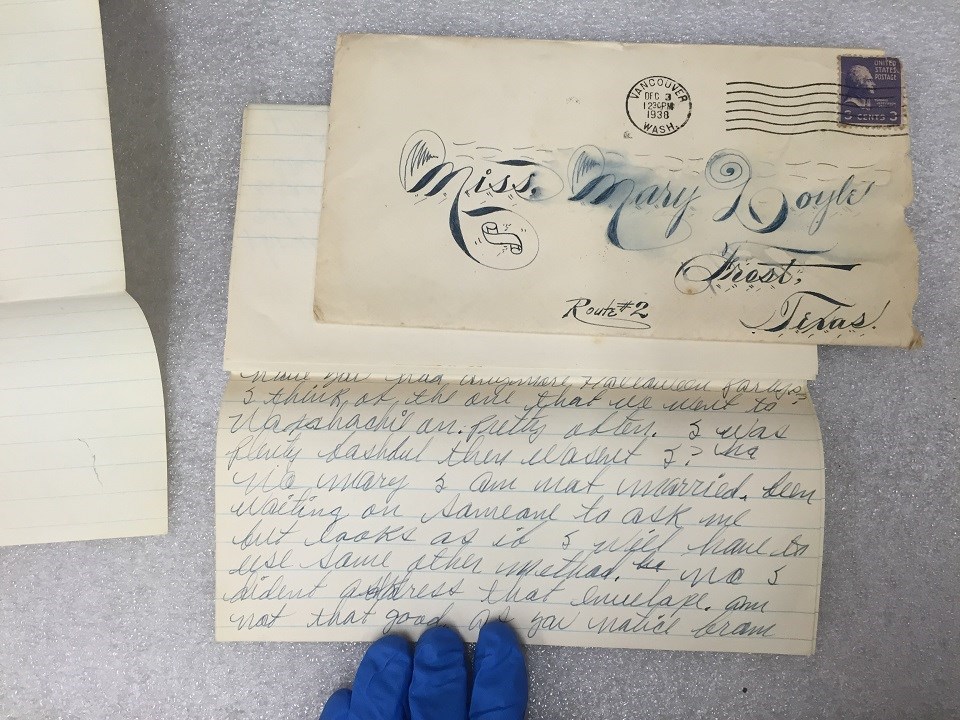 VANCOUVER
DEC 3
12 30 PM
1938
WASH.
UNITED
STATES
POSTAGE
3 CENTS 3
Miss. Mary Doyle
Frost,
Texas.
Route #2
have you had anymore Halloween Partys?
I think of the one that we went to
Waxahachie on. Pretty often. I was
plenty bashful then wasnt I? ha
No mary I am not married. been
waiting on someone to ask me
but looks as if I will have to
use some other method. ha no I
dident address that envelope. am
not that good as you notice from